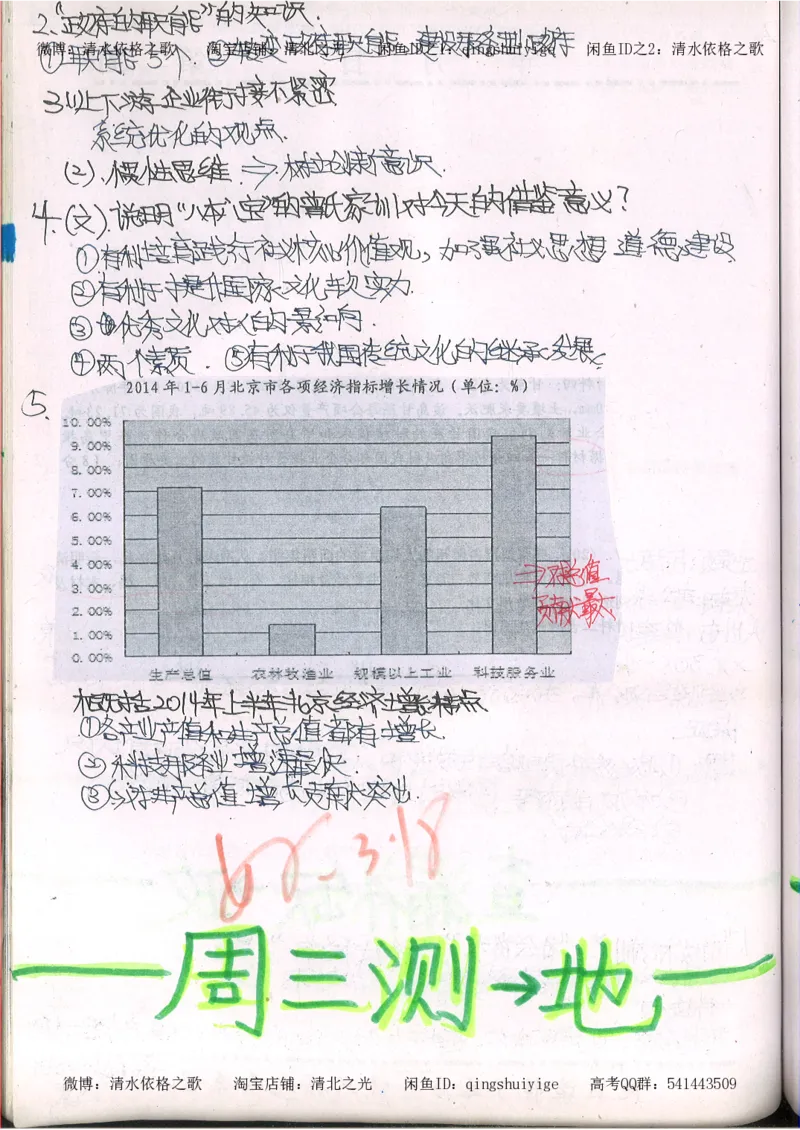 2."政府的职能"的知识.
微博：清水依格之歌 淘宝店铺：清北之光 闲鱼ID之1：qingshuiyige 闲鱼ID之2：清水依格之歌
3.(1)上下游企业衔接不紧密
系统优化的观点.
(2).惯性思维 ⇒ 树立创新意识.
4.(文).说明"八本八宝"的曾氏家训对今天的借鉴意义?
①有利培育践行社义核心价值观，加强社义思想道德建设
②有利于提升国家文化软实力.
③优秀文化对人的影响.
④两个素质. ⑤有利于我国传统文化的继承发展.
5.
2014年1-6月北京市各项经济指标增长情况（单位：%）
10.00%
9.00%
8.00%
7.00%
6.00%
5.00%
4.00%
3.00%
2.00%
1.00%
0.00%
⇒对总值
贡献最大
生产总值 农林牧渔业 规模以上工业 科技服务业
概括2014年上半年北京经济增长特点
①各产业产值和生产总值都有增长.
②科技服务业增速最快.
③对生产总值增长贡献突出.
3.18
周三测→地
微博：清水依格之歌 淘宝店铺：清北之光 闲鱼ID：qingshuiyige 高考QQ群：541443509